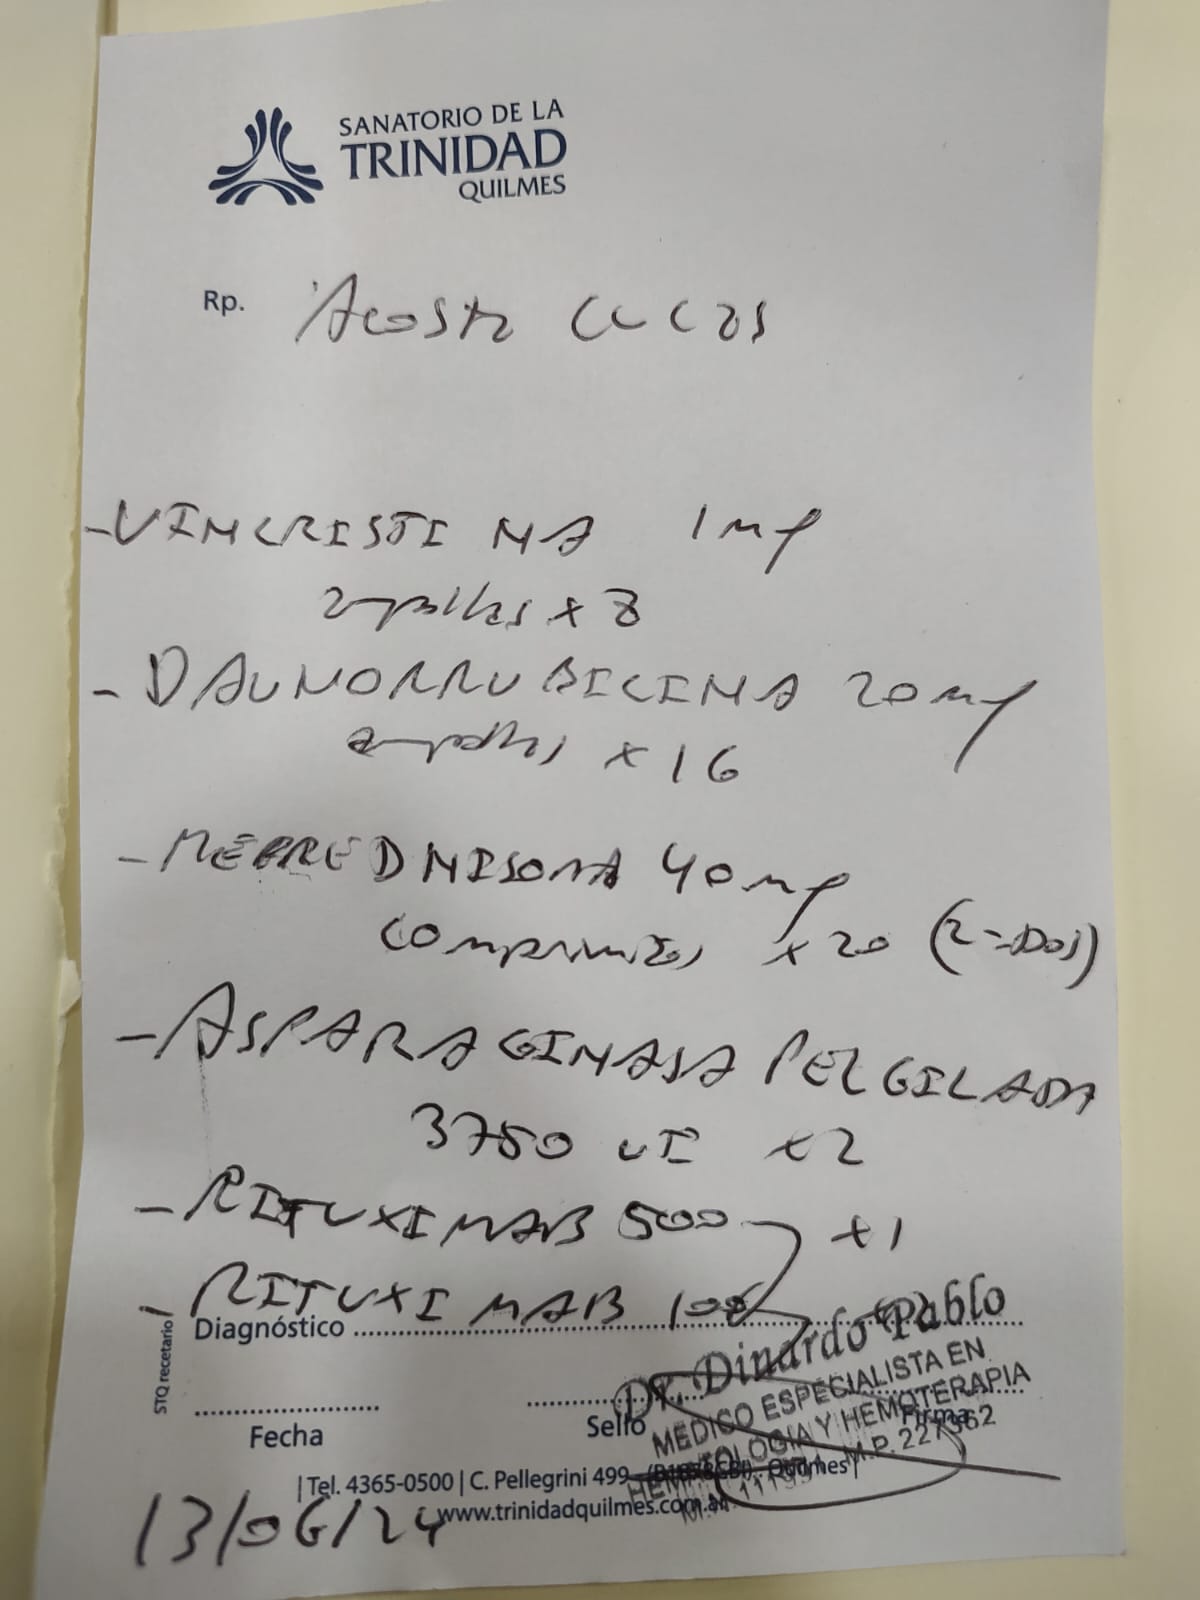 SANATORIO DE LA
TRINIDAD
QUILMES
Rp. Acosta Lucas
- VINCRISTINA 1mg
ampollas x 8
- DAUNORRUBICINA 20mg
ampollas x 16
- MEPREDNISONA 40mg
comprimidos x 20 (2=DOS)
- ASPARAGINASA PEGILADA
3750 UI x2
- RITUXIMAB 500 x1
- RITUXIMAB 100
Diagnóstico
Dr. Dinardo Pablo
MEDICO ESPECIALISTA EN
HEMATOLOGIA Y HEMOTERAPIA
M.P. 227362
STQ recetario
Fecha
Sello
Firma
| Tel. 4365-0500 | C. Pellegrini 499 Quilmes |
www.trinidadquilmes.com.ar
13/06/24